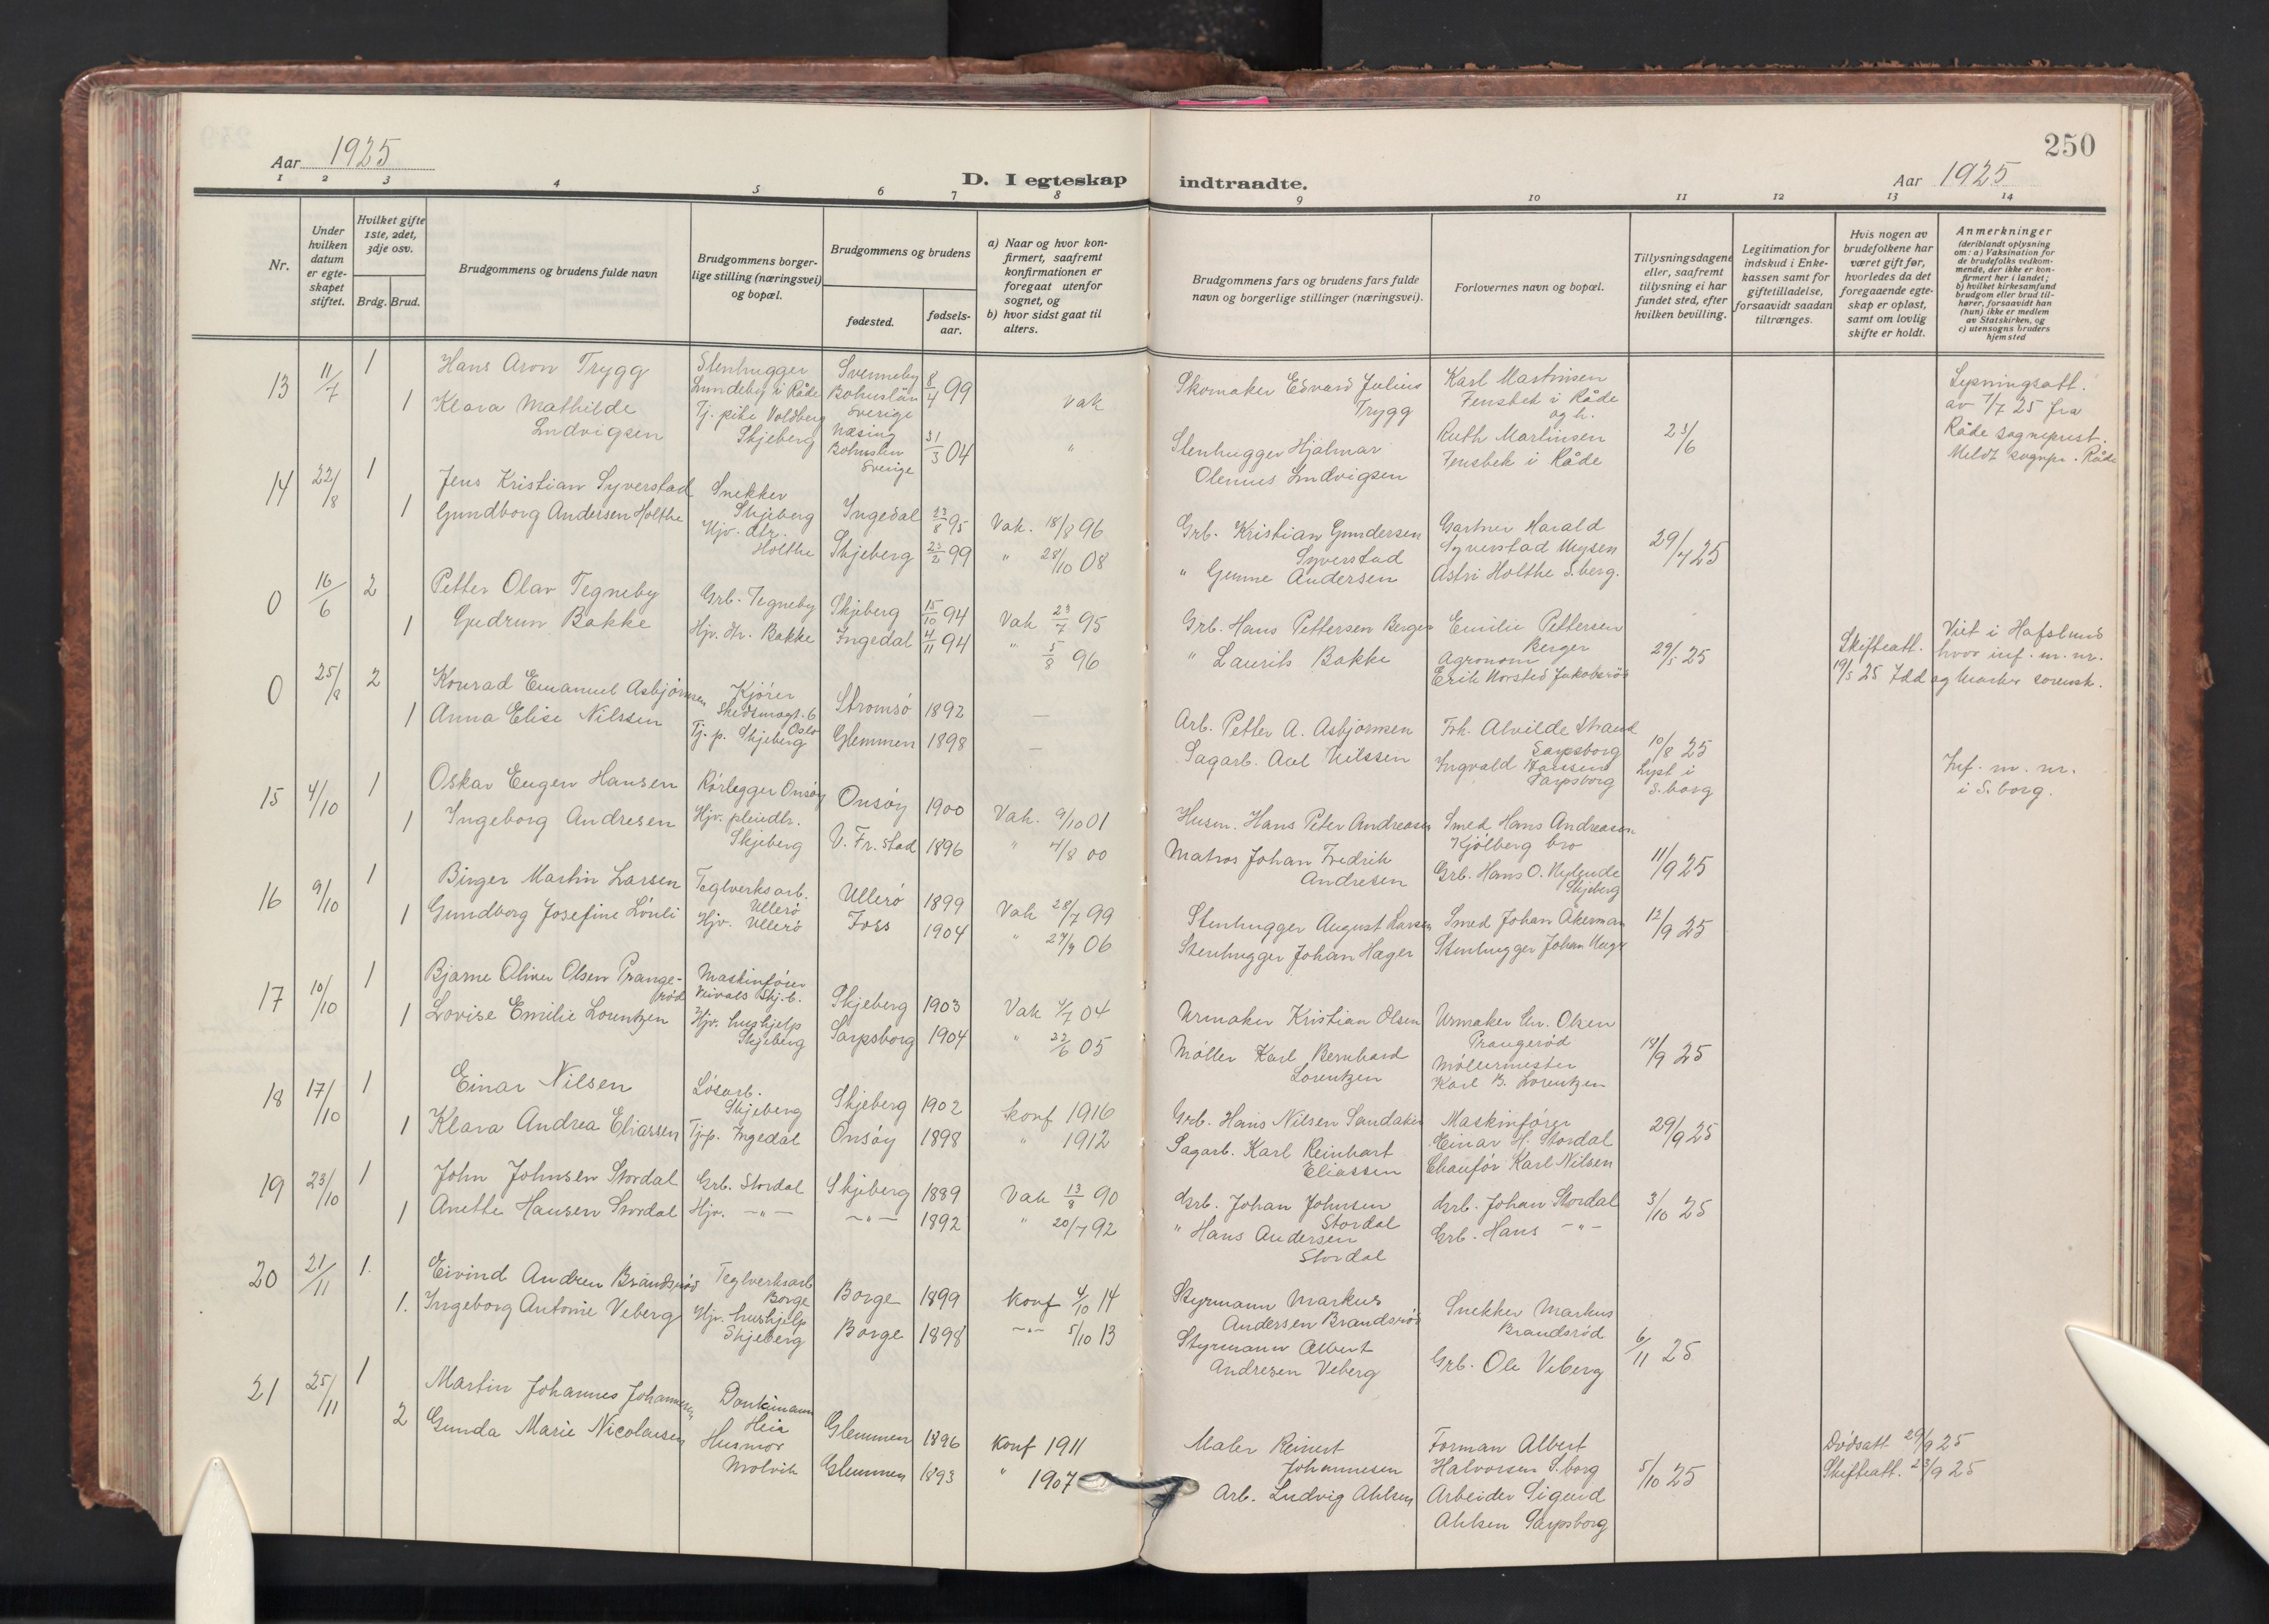 250
Aar 1925
D. I egteskap indtraadte.
Aar 1925
1 2 3 4 5 6 7 8 9 10 11 12 13 14
Nr.
Under hvilken datum er egteskapet stiftet.
Hvilket gifte 1ste, 2det, 3dje osv.
Brdg. Brud.
Brudgommens og brudens fulde navn
Brudgommens borgerlige stilling (næringsvei) og bopæl.
Brudgommens og brudens
fødested.
fødselsaar.
a) Naar og hvor konfirmert, saafremt konfirmationen er foregaat utenfor sognet, og
b) hvor sidst gaat til alters.
Brudgommens fars og brudens fars fulde navn og borgerlige stillinger (næringsvei).
Forlovernes navn og bopæl.
Tillysningsdagene eller, saafremt tillysning ei har fundet sted, efter hvilken bevilling.
Legitimation for indskud i Enkekassen samt for giftetilladelse, forsaavidt saadan tiltrænges.
Hvis nogen av brudefolkene har været gift før, hvorledes da det foregaaende egteskap er opløst, samt om lovlig skifte er holdt.
Anmerkninger
(deriblandt oplysning om: a) Vaksination for de brudefolks vedkommende, der ikke er konfirmert her i landet; b) hvilket kirkesamfund brudgom eller brud tilhører, forsaavidt han (hun) ikke er medlem av Statskirken, og c) utensogns bruders hjemsted
13 11/7 1 Hans Aron Trygg Stenhugger Lundeby i Råde Svenneby Bohuslän Sverige 8/4 99 vak Skomaker Edvard Julius Trygg Karl Martinsen Fensbek i Råde og h. 23/6 Lysningsatt. av 7/7 25 fra Råde sogneprest. Meldt sognepr. Råde
1 Klara Mathilde Ludvigsen Tj. pike Voldberg Skjeberg Næsing Bohuslen Sverige 31/3 04 " Stenhugger Hjalmar Olenius Ludvigsen Ruth Martinsen Fensbek i Råde
14 22/8 1 Jens Kristian Syverstad Snekker Skjeberg Ingedal 23/8 95 Vak. 18/8 96 Grb. Kristian Gundersen Syverstad Gartner Harald Syverstad Mysen 29/4 25
1 Gundborg Andersen Holthe Hjv. dtr. Holthe Skjeberg 23/2 99 " 28/10 08 " Gunne Andersen Astri Holthe S.berg.
0 16/6 2 Petter Olav Tegneby Grb. Tegneby Skjeberg 15/10 94 Vak 23/7 95 Grb. Hans Pettersen Berger Emilie Pettersen Berger 29/5 25 Skifteatt. 19/5 25 Idd og Marker sorensk. Viet i Hafslund hvor inf. m. nr.
1 Gudrun Bakke Hjv. dtr. Bakke Ingedal 4/11 94 " 5/8 96 " Laurits Bakke Agronom Erik Norsted Jakobsrød
0 25/8 2 Konrad Emanuel Asbjørnsen Kjører Skedsmogt. 6 Oslo Strømsø 1892 — Arb. Petter A. Asbjørnsen Frk. Alvilde Strand Sarpsborg 10/8 25 Lyst i S.borg Inf. m. nr. i S.borg.
1 Anna Elise Nilssen Tj. p. Skjeberg Glemmen 1898 — Sagarb. Axel Nilssen Ingvald Hansen Sarpsborg
15 4/10 1 Oskar Eugen Hansen Rørlegger Onsøy Onsøy 1900 Vak. 9/10 01 Husm. Hans Peter Andreasen Smed Hans Andreasen Kjølberg bro 11/9 25
1 Ingeborg Andresen Hjv. pleiedtr. Skjeberg V. Fr.stad 1896 " 4/8 00 Matros Johan Fredrik Andresen Grb. Hans O. Nylende Skjeberg
16 9/10 1 Birger Martin Larsen Teglverksarb. Ullerø Ullerø 1899 Vak 28/7 99 Stenhugger August Larsen Smed Johan Åkerman 12/9 25
1 Gundborg Josefine Lönli Hjv. Ullerø Foss 1904 " 27/9 06 Stenhugger Johan Hager Stenhugger Johan
17 10/10 1 Bjarne Oliver Olsen Prangerød Maskinfører Skj.b. Skjeberg 1903 Vak 4/7 04 Urmaker Kristian Olsen Urmaker Chr. Olsen Prangerød 18/9 25
1 Lovise Emilie Lorentzen Hjv. hushjelp Skjeberg Sarpsborg 1904 " 22/6 05 Møller Karl Bernhard Lorentzen Møllermester Karl B. Lorentzen
18 17/10 1 Einar Nilsen Løsarb. Skjeberg Skjeberg 1902 konf 1916 Grb. Hans Nilsen Sandaker Maskinfører Einar H. Stordal 29/9 25
1 Klara Andrea Eliassen Tj.p. Ingedal Onsøy 1898 " 1912 Sagarb. Karl Reinhart Eliassen Chauför Karl Nilsen
19 23/10 1 John Johnsen Stordal Grb. Stordal Skjeberg 1889 Vak 13/8 90 Grb. Johan Johnsen Stordal Grb. Johan Stordal 3/10 25
1 Anette Hansen Stordal Hjv. —"— —"— 1892 " 20/7 92 " Hans Andersen Stordal Grb. Hans —"—
20 21/11 1. Eivind Andreu Brandsrød Teglverksarb Borge Borge 1899 konf 4/10 14 Styrmann Markus Andersen Brandsrød Snekker Markus Brandsrød 6/11 25
1. Ingeborg Antonie Veberg Hjv. hushjelp Skjeberg Borge 1898 —"— 5/10 13 Styrmann Albert Andresen Veberg Grb. Ole Veberg
21 25/11 1 Martin Johannes Johannesen Donkimann Heia Glemmen 1896 konf 1911 Maler Reinert Johannesen Forman Albert Halvorsen S.borg 5/10 25 Dødsatt. 29/9 25 Skifteatt. 23/9 25
2 Gunda Marie Nicolaisen Husmor Molvik Glemmen 1893 " 1907 Arb. Ludvig Ahlsen Arbeider Sigurd Ahlsen Sarpsborg